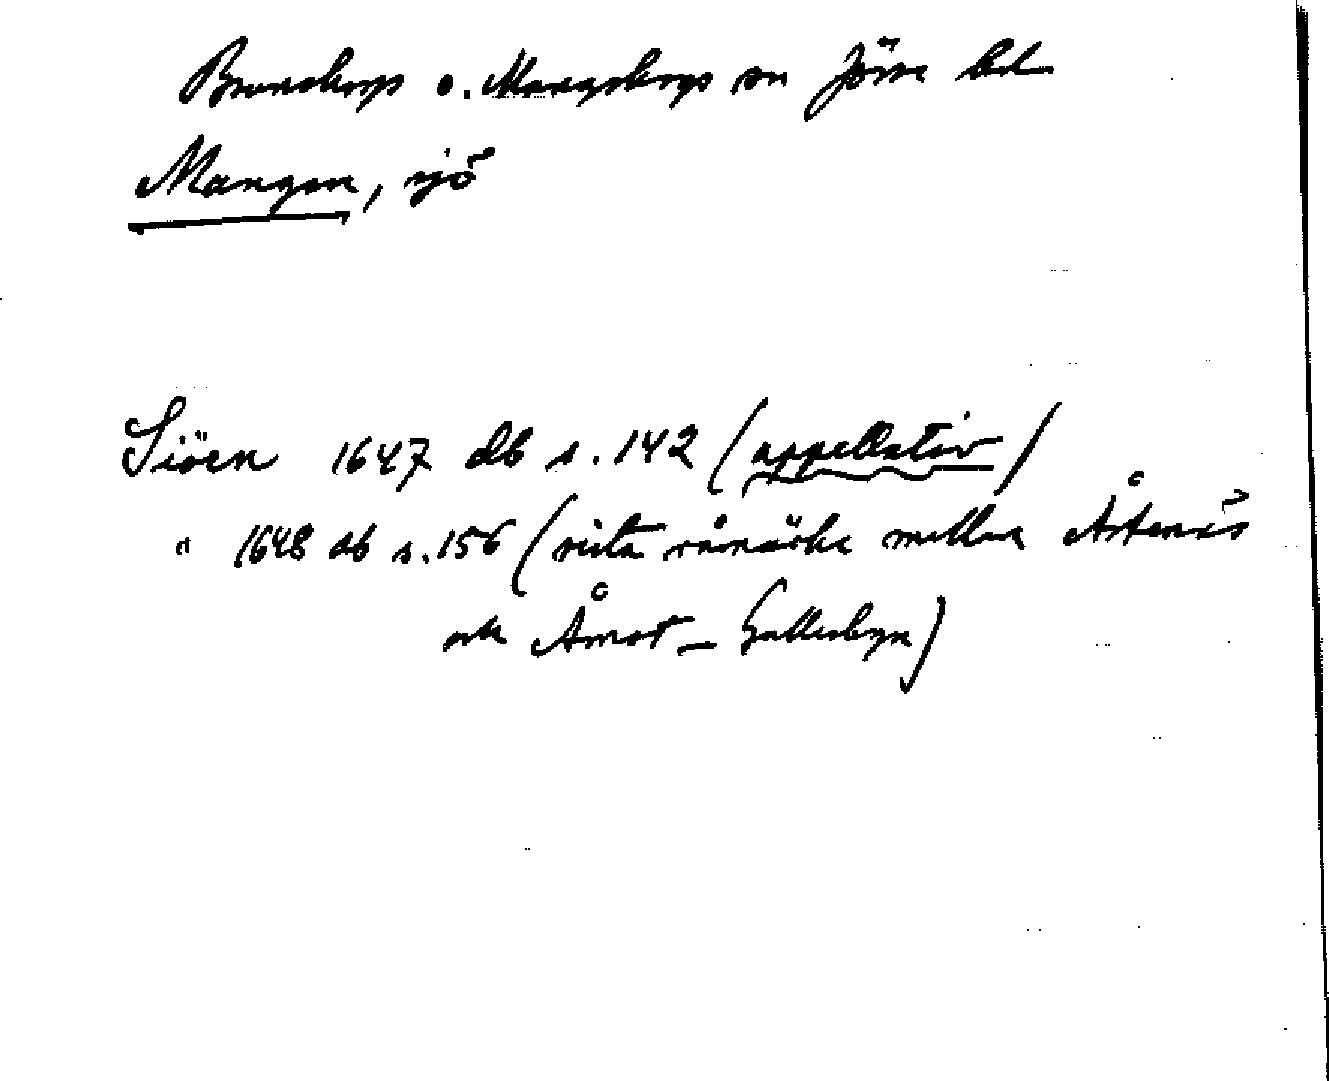 Brunskogs o. Mangskogs sn Jösse hd
Mangen, sjö
Siöen 1647 db s. 142 (appellativ)
" 1648 db s. 156 (sista råmärke mellan Årtenäs
och Åmot – Gullesbyn)